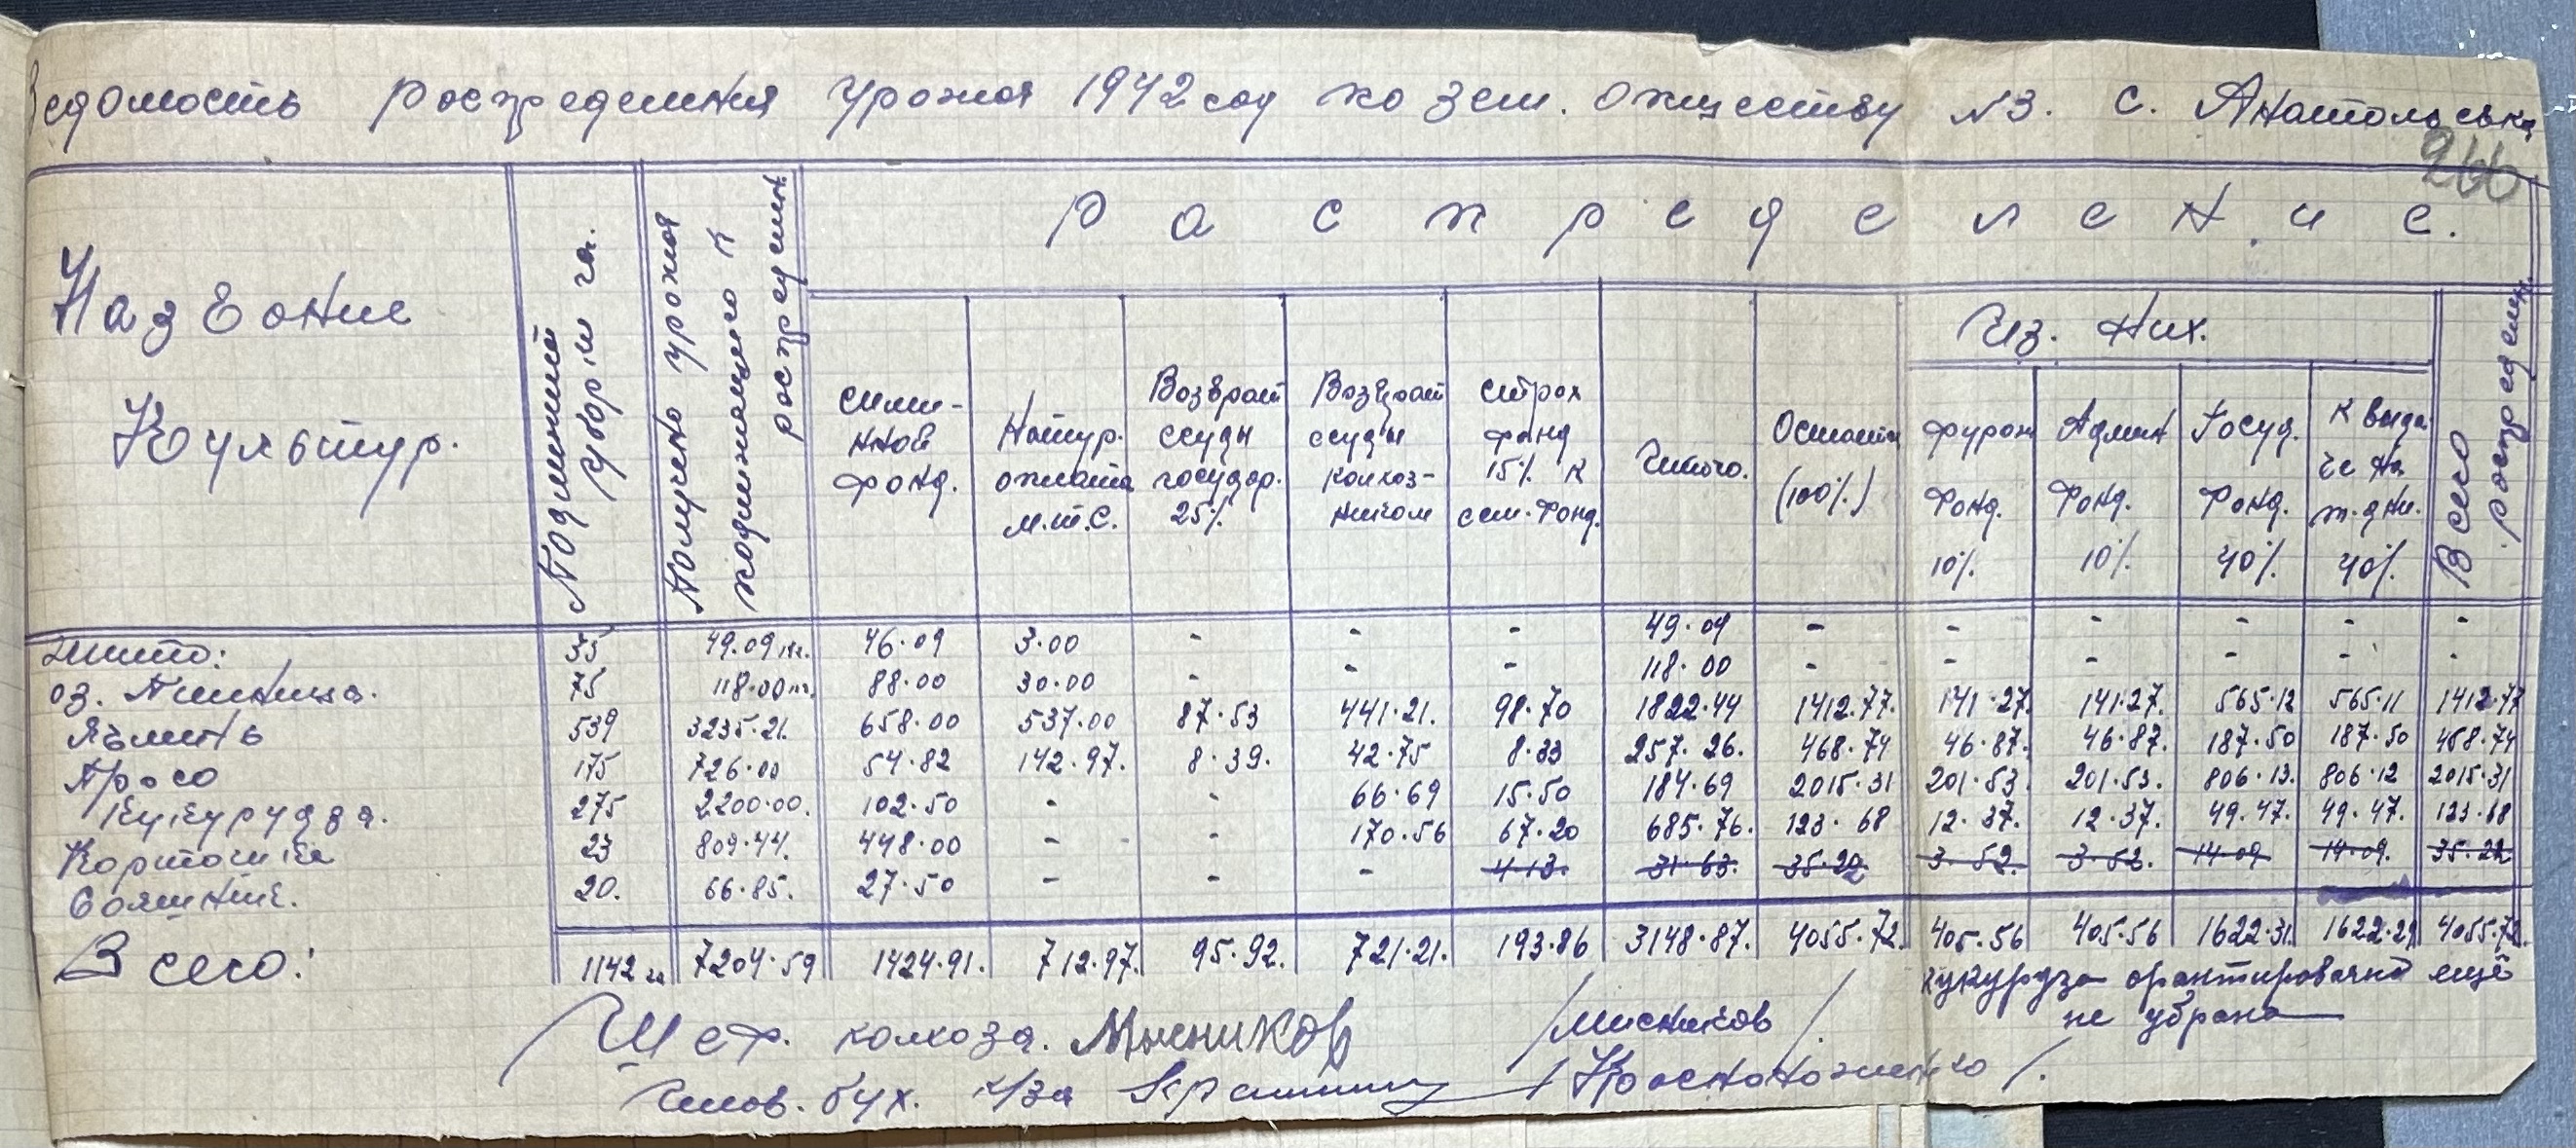 Ведомость роспределения урожоя 1942 году по зем. опществу №3. с. Анатольевка
266
Название Культур.
Подлежит уборки га.
Получено урожоя подлежащего к роспределен.
Распределение.
Семенной фонд.
Натур. оплата м.т.с.
Возврат ссуды государ. 25%
Возврат ссуды колхозником
Страх фонд 15% к сем. фонд.
Итого.
Остаток (100%)
Из них.
Фураж фонд. 10%
Админ фонд. 10%
Госуд. фонд. 40%
К выдаче на т.дни. 40%
Всего роспределен.
Жито: 35 49.09 46.09 3.00 - - - 49.09 - - - - - -
оз. Пшеница. 75 118.00 88.00 30.00 - - - 118.00 - - - - - -
Ячмень 539 3235.21. 658.00 537.00 87.53 441.21. 98.70 1822.44 1412.77. 141.27. 141.27. 565.12 565.11 1412.77
Просо 175 726.00 54.82 142.97. 8.39. 42.75 8.33 257.26. 468.74 46.87. 46.87. 187.50 187.50 468.74
Кукурудза. 275 2200.00. 102.50 - - 66.69 15.50 184.69 2015.31 201.53. 201.53. 806.13. 806.12 2015.31
Картошка 23 809.44. 448.00 - - 170.56 67.20 685.76. 123.68 12.37. 12.37. 49.47. 49.47. 123.68
Сояшние. 20. 66.85. 27.50 - - - 4.13. 31.63. 35.22 3.52. 3.52. 14.09 14.09. 35.22
Всего: 1142 га 7204.59 1424.91. 712.97. 95.92. 721.21. 193.86 3148.87. 4055.72. 405.56 405.56 1622.31. 1622.29 4055.72.
кукурудза орантировачна ещё
не убрана
Шеф. колхоза. Мисников /Мисников/.
Голов. бух. к/за /Красноноженко/.